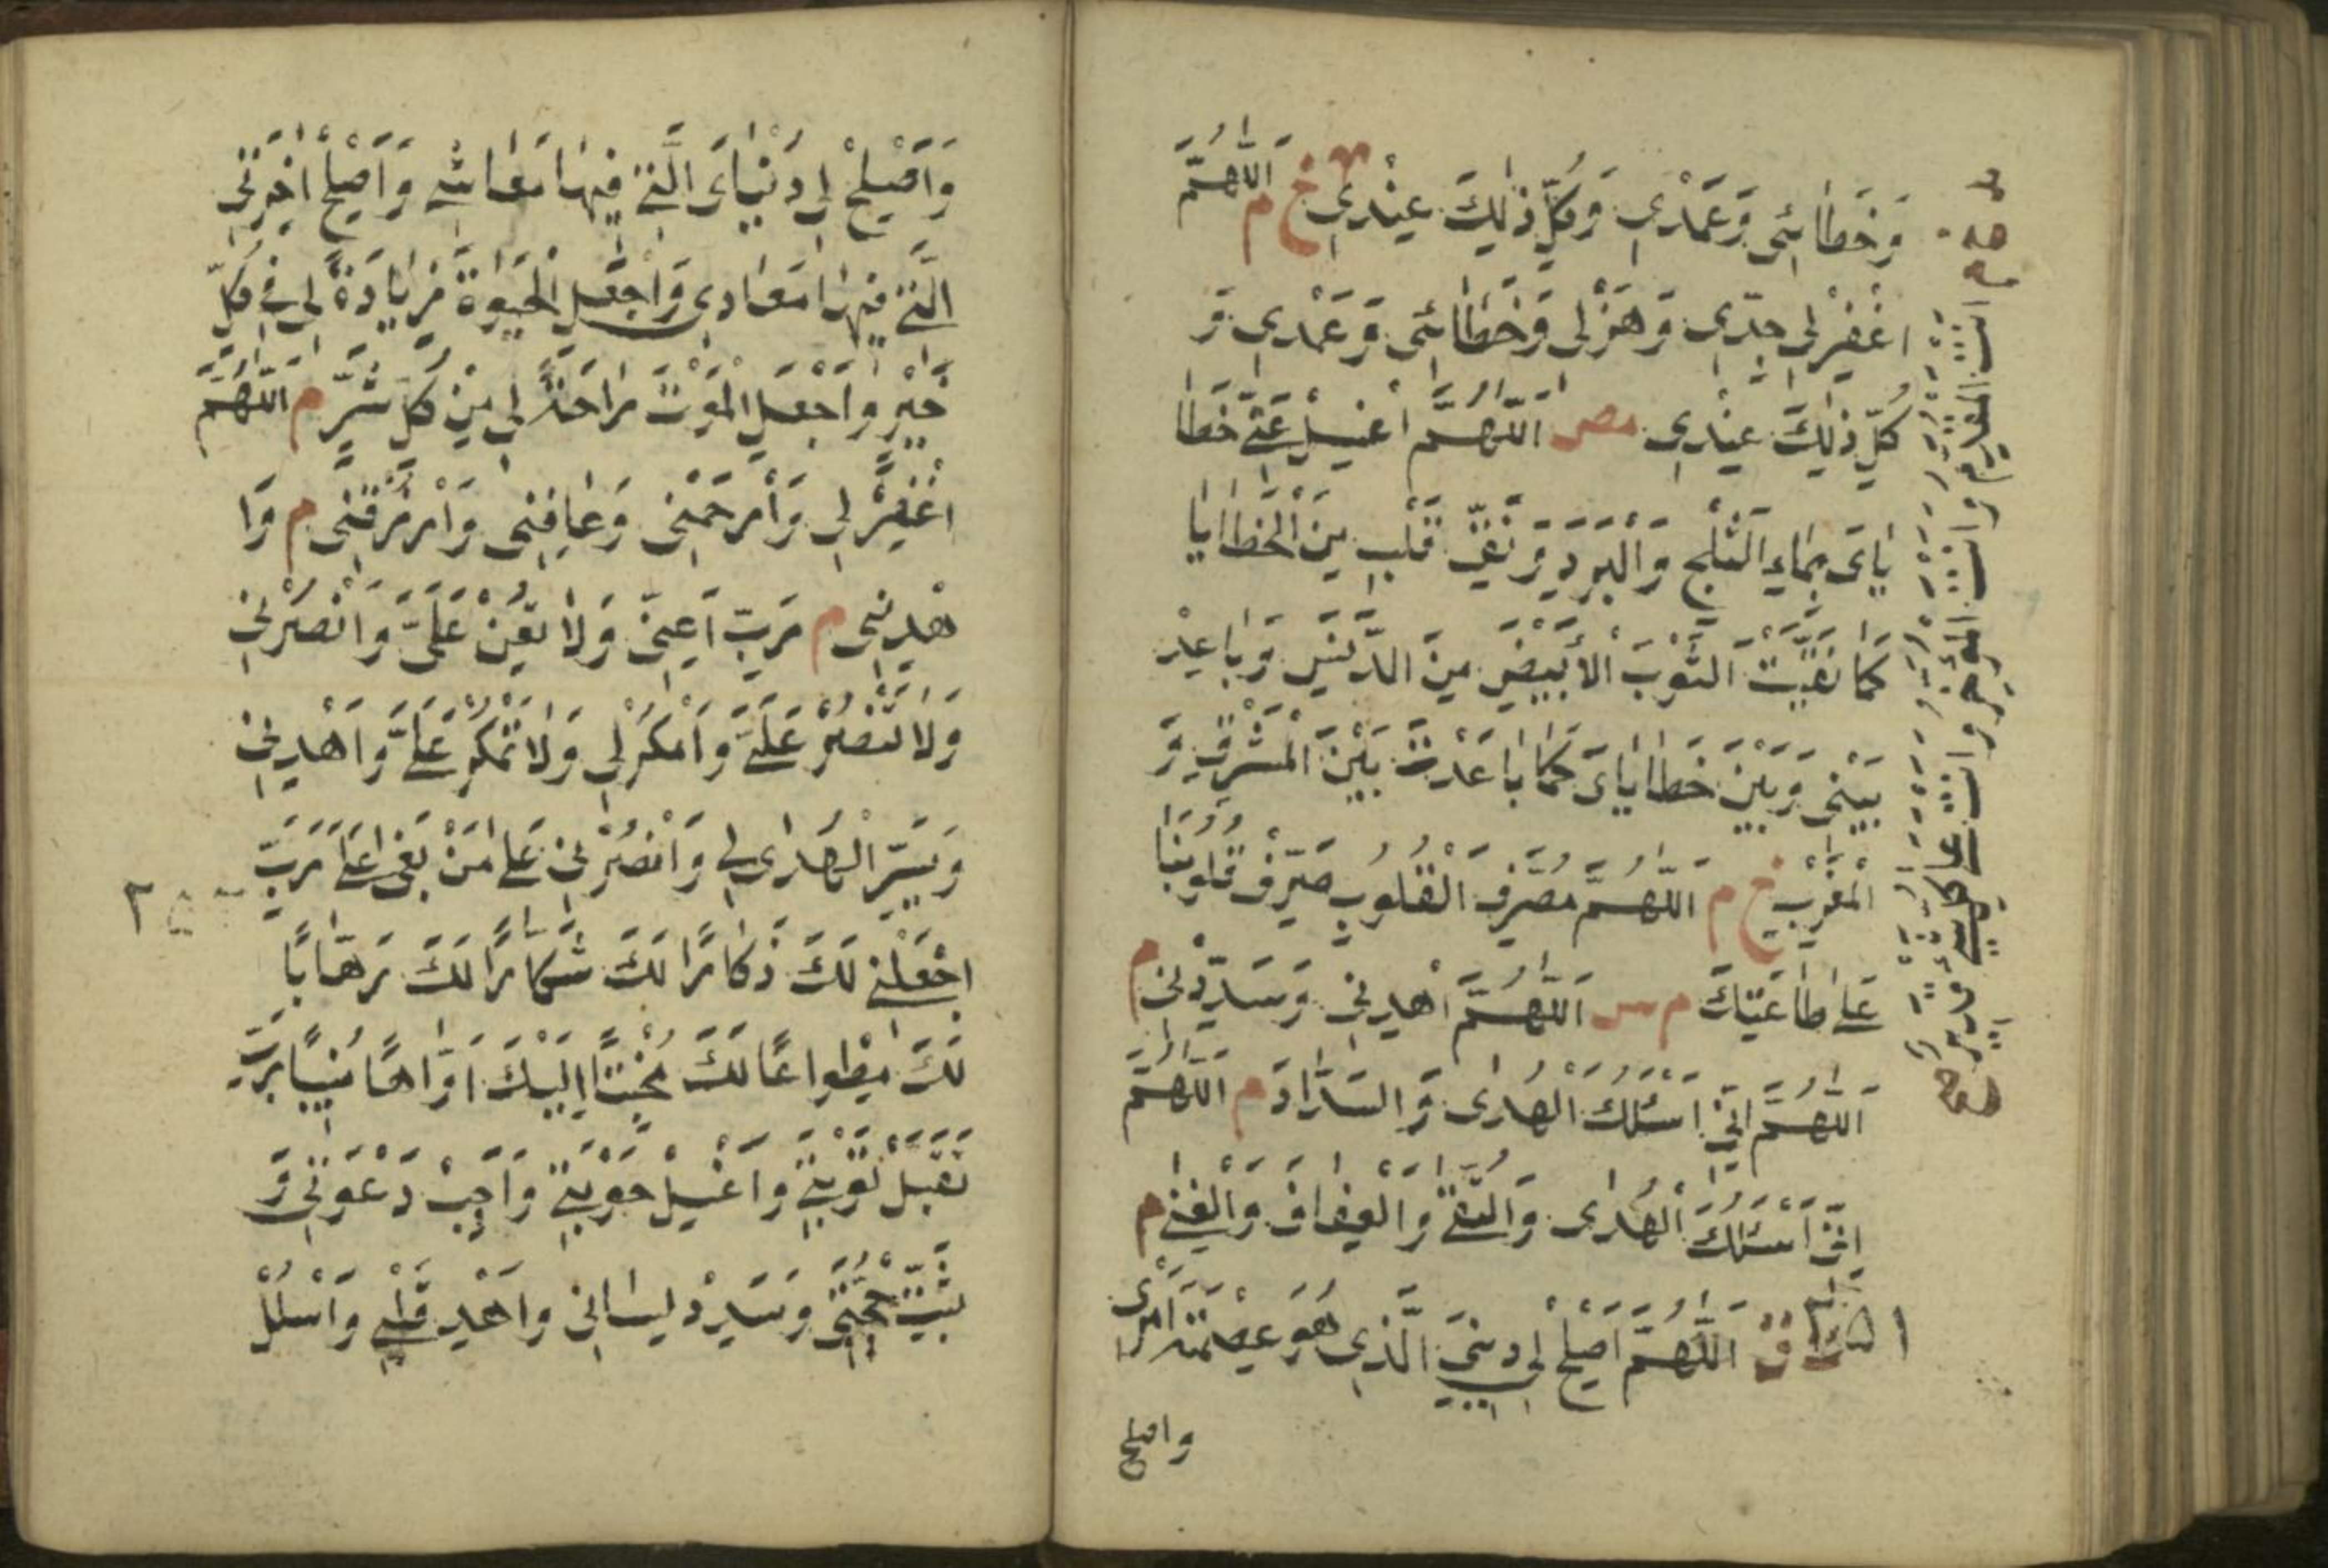 وَخَطَائِي وَعَمْدِي وَكُلُّ ذٰلِكَ عِنْدِي خ م اَللّٰهُمَّ
اغْفِرْ لِي جِدِّي وَهَزْلِي وَخَطَائِي وَعَمْدِي وَ
كُلُّ ذٰلِكَ عِنْدِي مص اَللّٰهُمَّ اغْسِلْ عَنِّي خَطَا
يَايَ بِمَاءِ الثَّلْجِ وَالْبَرَدِ وَنَقِّ قَلْبِي مِنَ الْخَطَايَا
كَمَا نَقَّيْتَ الثَّوْبَ الْأَبْيَضَ مِنَ الدَّنَسِ وَبَاعِدْ
بَيْنِي وَبَيْنَ خَطَايَايَ كَمَا بَاعَدْتَ بَيْنَ الْمَشْرِقِ وَ
الْمَغْرِبِ خ م اَللّٰهُمَّ مُصَرِّفَ الْقُلُوبِ صَرِّفْ قُلُوبَنَا
عَلَى طَاعَتِكَ م س اَللّٰهُمَّ اهْدِنِي وَسَدِّدْنِي م
اَللّٰهُمَّ اِنِّي اَسْئَلُكَ الْهُدٰى وَالسَّدَادَ م اَللّٰهُمَّ
اِنِّي اَسْئَلُكَ الْهُدٰى وَالتُّقٰى وَالْعَفَافَ وَالْغِنٰى م
ق اَللّٰهُمَّ اَصْلِحْ لِي دِينِيَ الَّذِي هُوَ عِصْمَةُ اَمْرِي
واصلح
انت المقدم وانت المؤخر وانت على كل شئ قدير
صح
وَاَصْلِحْ لِي دُنْيَايَ الَّتِي فِيهَا مَعَاشِي وَاَصْلِحْ اٰخِرَتِي
الَّتِي فِيهَا مَعَادِي وَاجْعَلِ الْحَيٰوةَ زِيَادَةً لِي فِي كُلِّ
خَيْرٍ وَاجْعَلِ الْمَوْتَ رَاحَةً لِي مِنْ كُلِّ شَرٍّ م اَللّٰهُمَّ
اغْفِرْ لِي وَارْحَمْنِي وَعَافِنِي وَارْزُقْنِي م وَا
هْدِنِي م رَبِّ اَعِنِّي وَلَا تُعِنْ عَلَيَّ وَانْصُرْنِي
وَلَا تَنْصُرْ عَلَيَّ وَامْكُرْ لِي وَلَا تَمْكُرْ عَلَيَّ وَاهْدِنِي
وَيَسِّرِ الْهُدٰى لِي وَانْصُرْنِي عَلَى مَنْ بَغٰى عَلَيَّ رَبِّ
اجْعَلْنِي لَكَ ذَكَّارًا لَكَ شَكَّارًا لَكَ رَهَّابًا
لَكَ مِطْوَاعًا لَكَ مُخْبِتًا اِلَيْكَ اَوَّاهًا مُنِيبًا رَبِّ
تَقَبَّلْ تَوْبَتِي وَاغْسِلْ حَوْبَتِي وَاَجِبْ دَعْوَتِي وَ
ثَبِّتْ حُجَّتِي وَسَدِّدْ لِسَانِي وَاهْدِ قَلْبِي وَاسْلُلْ